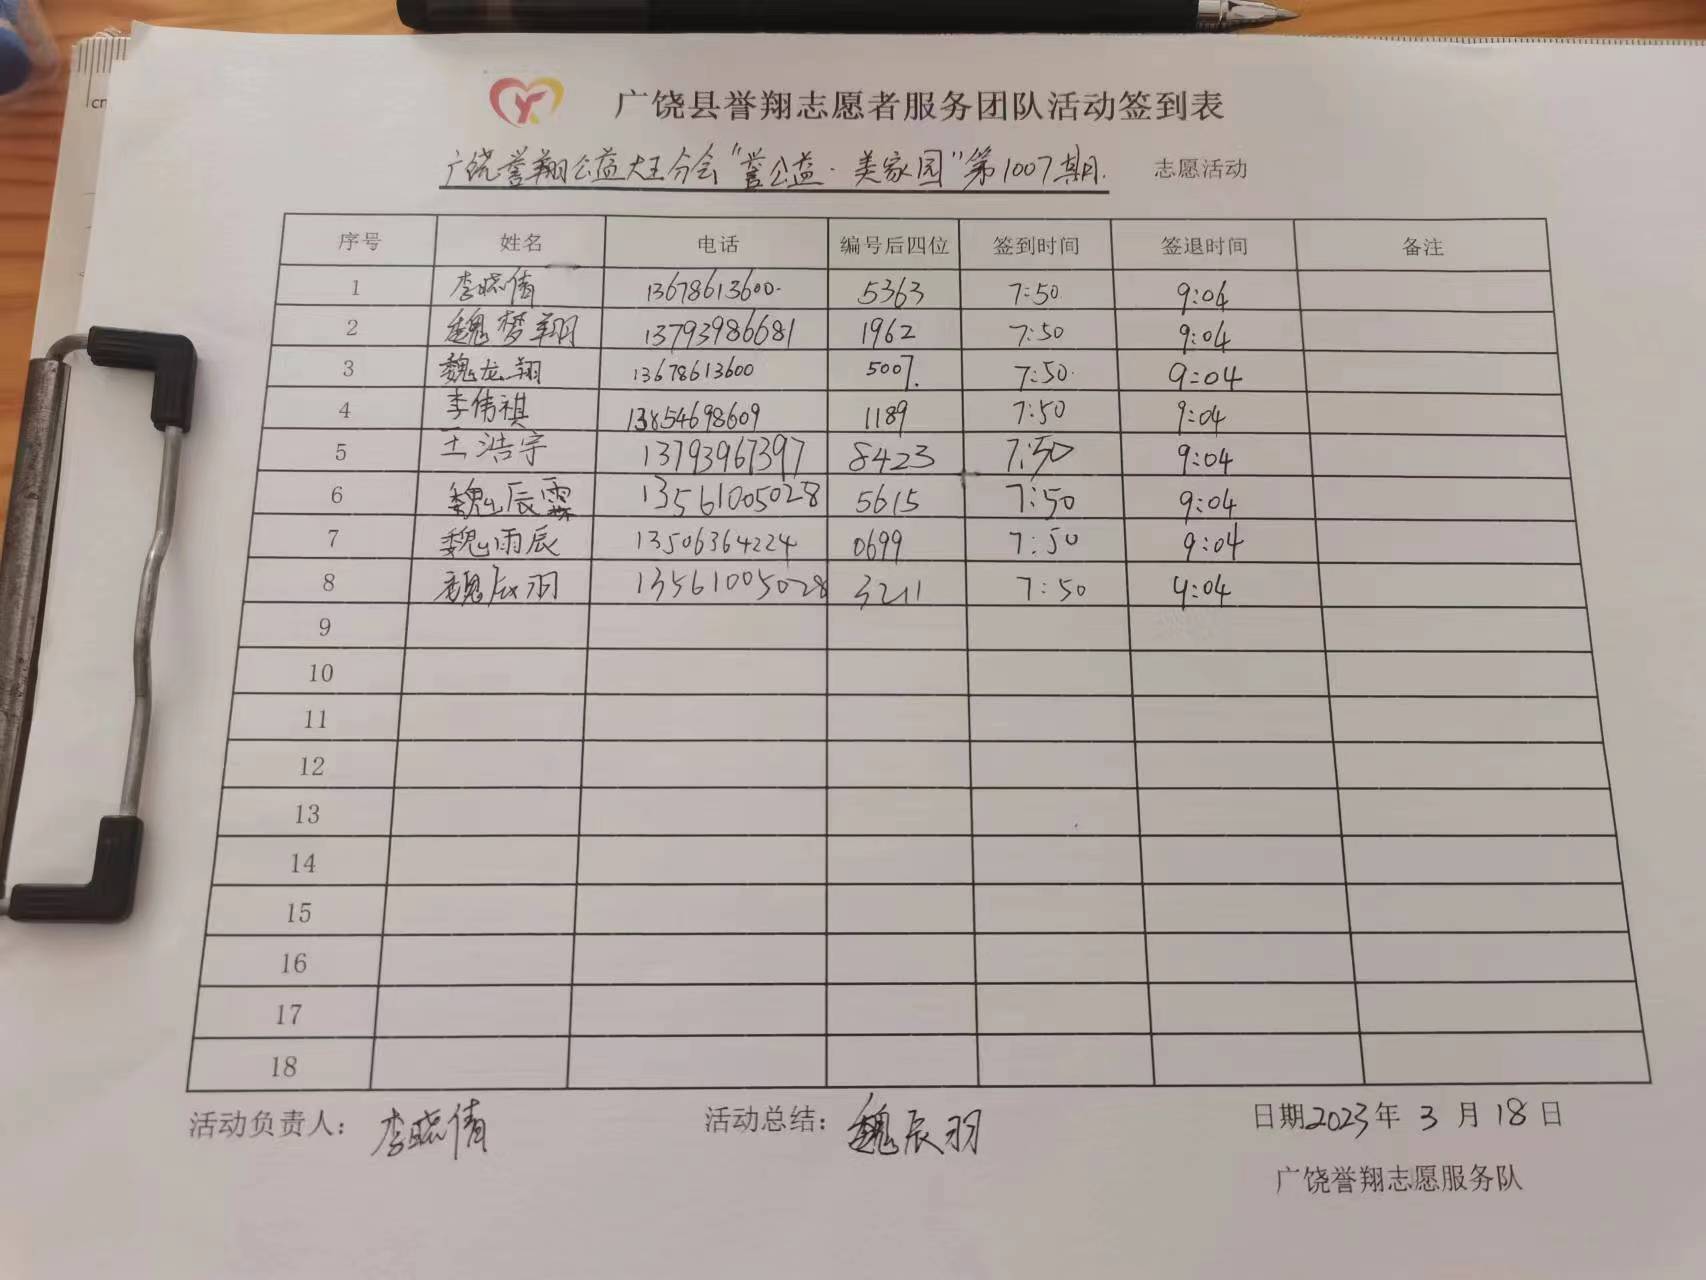 广饶县誉翔志愿者服务团队活动签到表
广饶誉翔公益大王分会“誉公益·美家园”第1007期. 志愿活动
序号 姓名 电话 编号后四位 签到时间 签退时间 备注
1 李晓倩 13678613600. 5363 7:50 9:04
2 魏梦翔 13793986681 1962 7:50 9:04
3 魏龙翔 13678613600 5007. 7:50. 9:04
4 李伟祺 13854698609 1189 7:50 9:04
5 王浩宇 13793967397 8423 7:50 9:04
6 魏辰霖 13561005028 5615 7:50 9:04
7 魏雨辰 13506364224 0699 7:50 9:04
8 魏辰羽 13561005028 3211 7:50 9:04
9
10
11
12
13
14
15
16
17
18
活动负责人: 李晓倩 活动总结: 魏辰羽 日期2023年3月18日
广饶誉翔志愿服务队